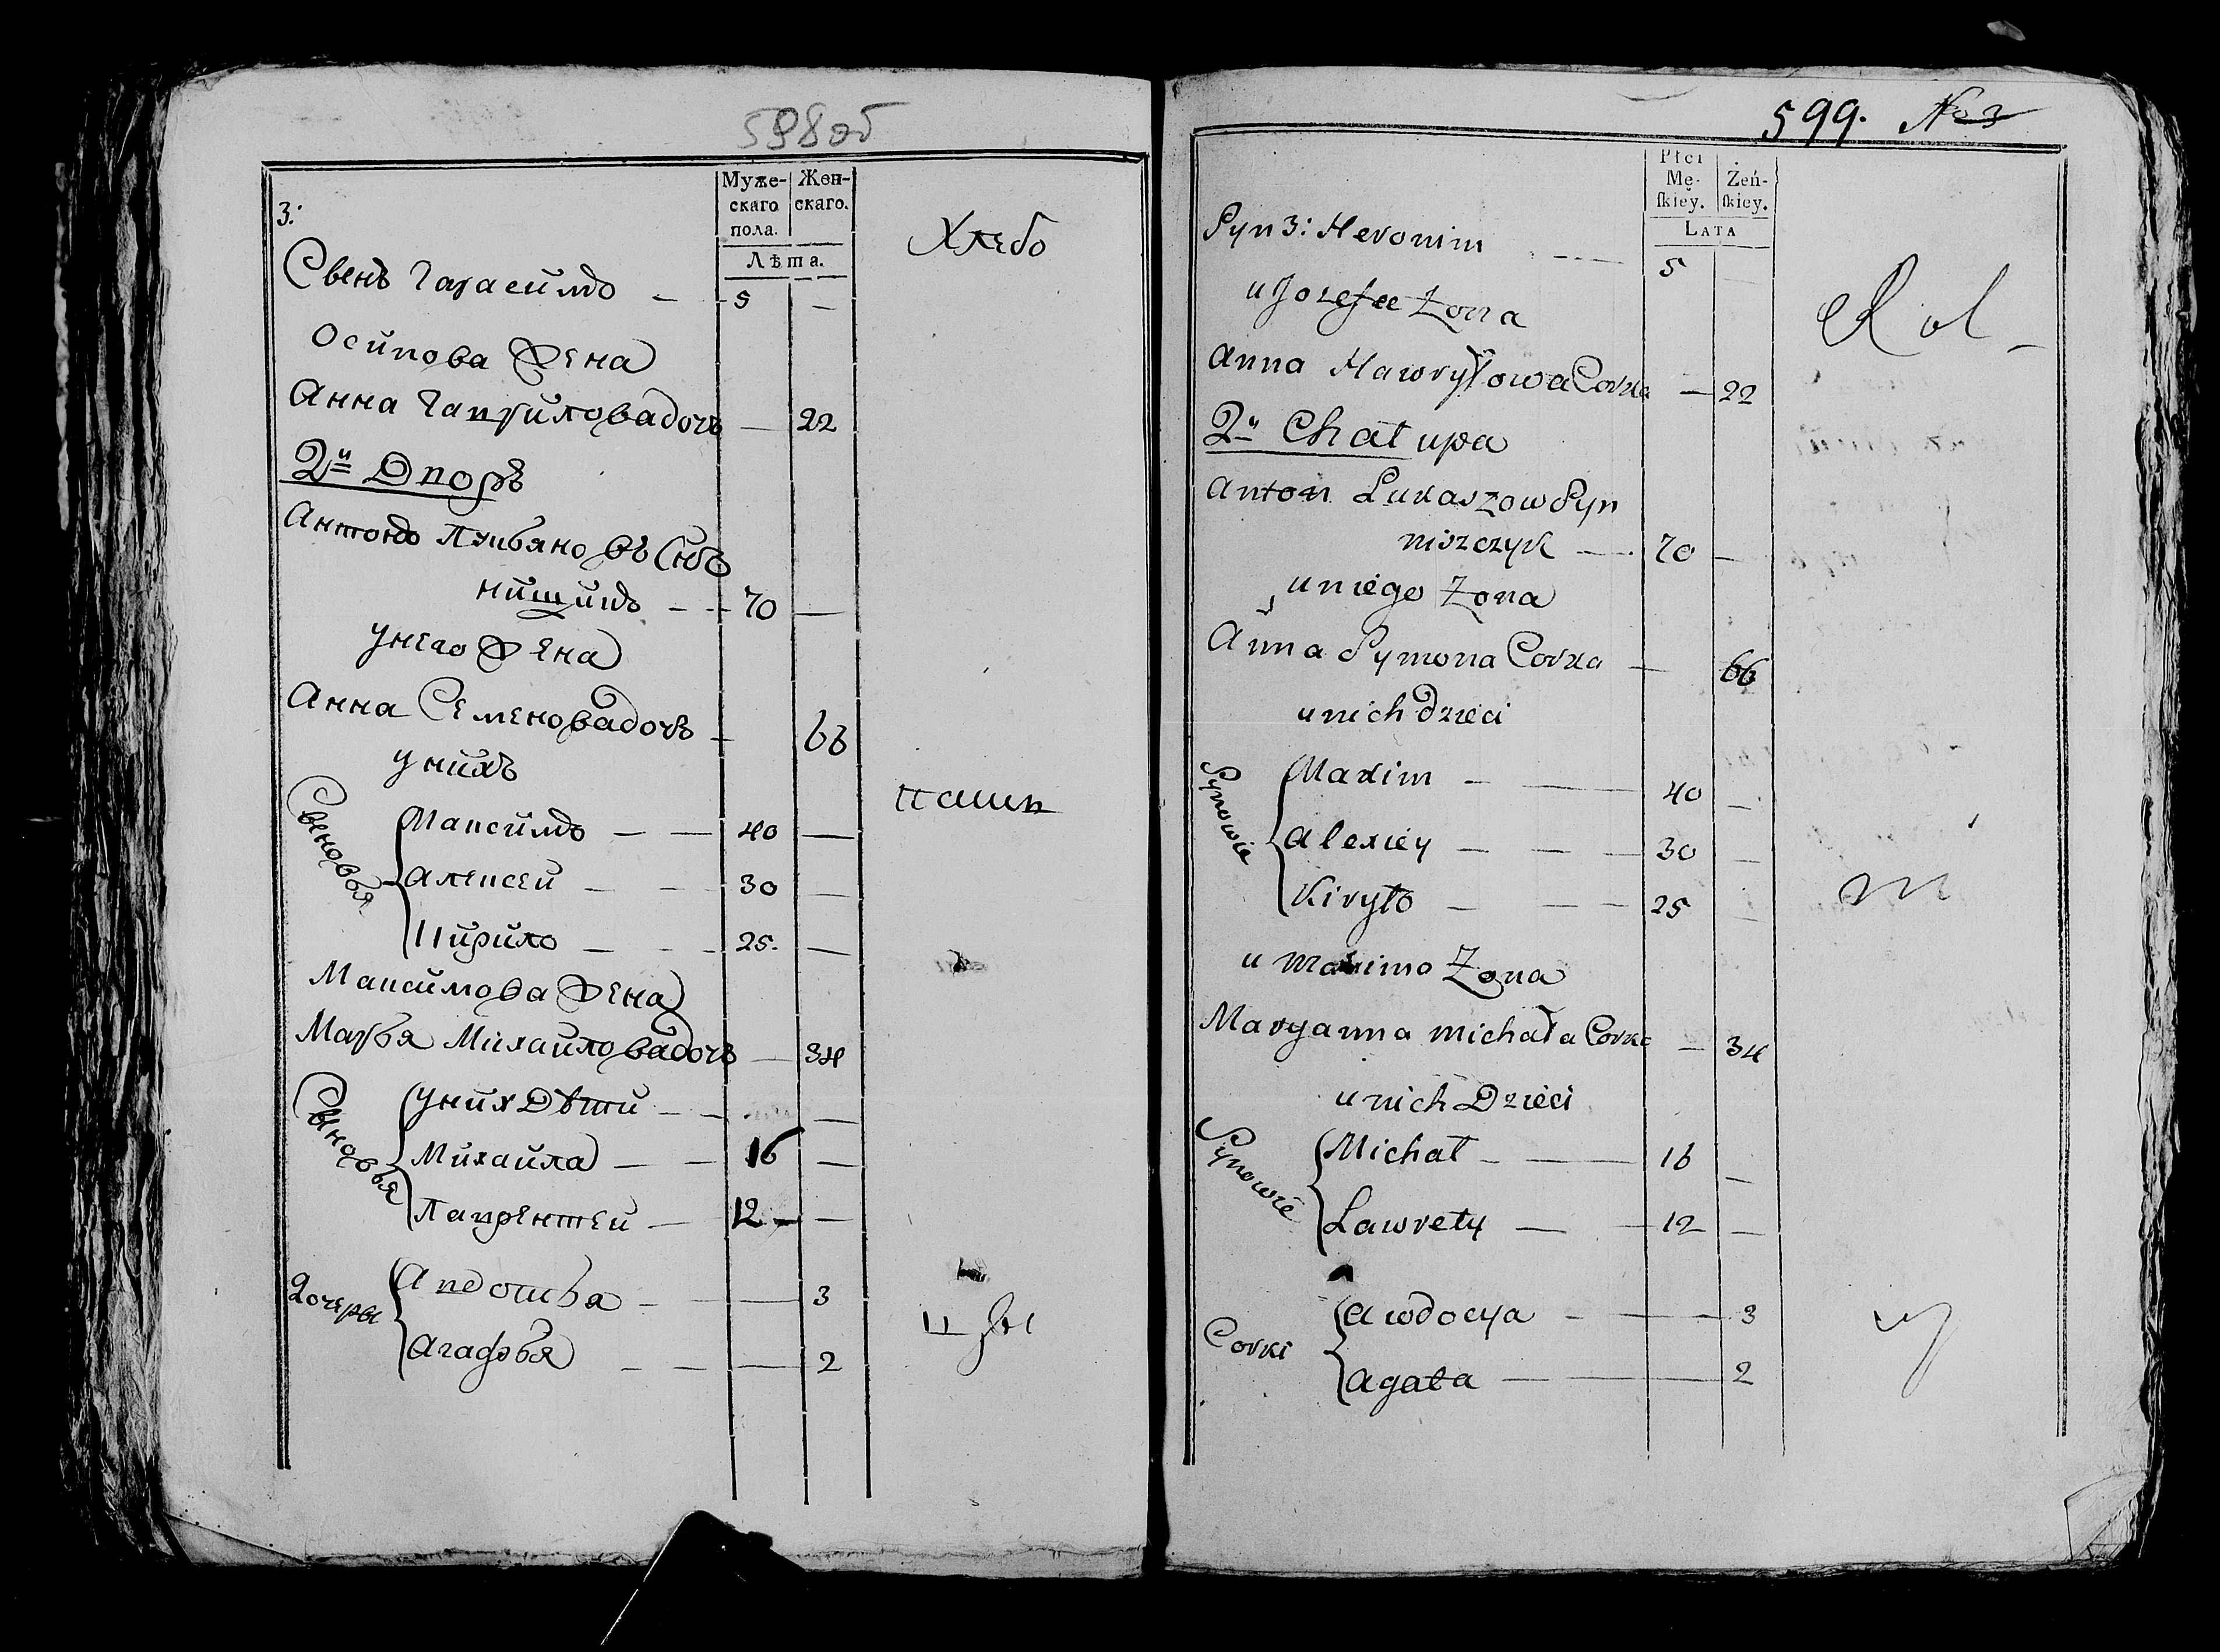 598об
3.
Муже-
скаго
пола.
Жен-
скаго.
Лѣта.
Хлебо
Свенъ Гарасимъ — 5 —
Осипова Жена
Анна Гаврилова дочъ — 22
2й Дворъ
Антонъ Лукьяновъ Снъ
нищимъ — 70 —
унего Жена
Анна Семенова дочъ — 66
унихъ
паши
Свеновья
Максимъ — — 40 —
Алексей — — 30 —
Кирило — — 25. —
Максимова Жена
Марья Михайлова дочъ — 34
Сыновья
уних Дѣти — — —
Михайла — — 16 —
Лаврентей — 12 — —
Дочеры
Авдотья — — 3
Агафья — — — 2
цы
599. No 3
Płci
Mę-
ſkiey.
Żeń-
ſkiey.
LATA
Syn 3: Heronim — 5 —
u Jozefa Zona
Rol
Anna Hawryłowa Corka — 22
2a Chałupa
Anton Lukaszow Syn
niszczyk — 70 —
u niego Zona
Anna Symona Corka — 66
u nich dzieci
Synowie
Maxim — — 40 —
Alexiey — — — 30 —
Kiryło — — — 25 —
ni
u Maxima Zona
Maryanna Michała Corka — 34
u nich Dzieci
Synowie
Michał — — 16 —
Lawrety — — 12 —
Corki
Awdocya — — — 3
Agata — — — 2
y